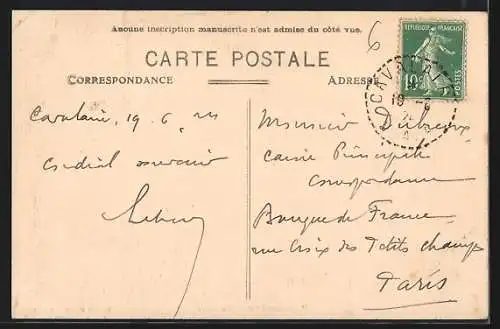 Aucune inscription manuscrite n'est admise du côté vue.
CARTE POSTALE
CORRESPONDANCE
ADRESSE
6
REPUBLIQUE FRANÇAISE
10c
POSTES
19 - 6
19. 6
Cordial souvenir
Monsieur
Caisse Principale
Correspondance
Banque de France
rue Croix des Petits champs
Paris